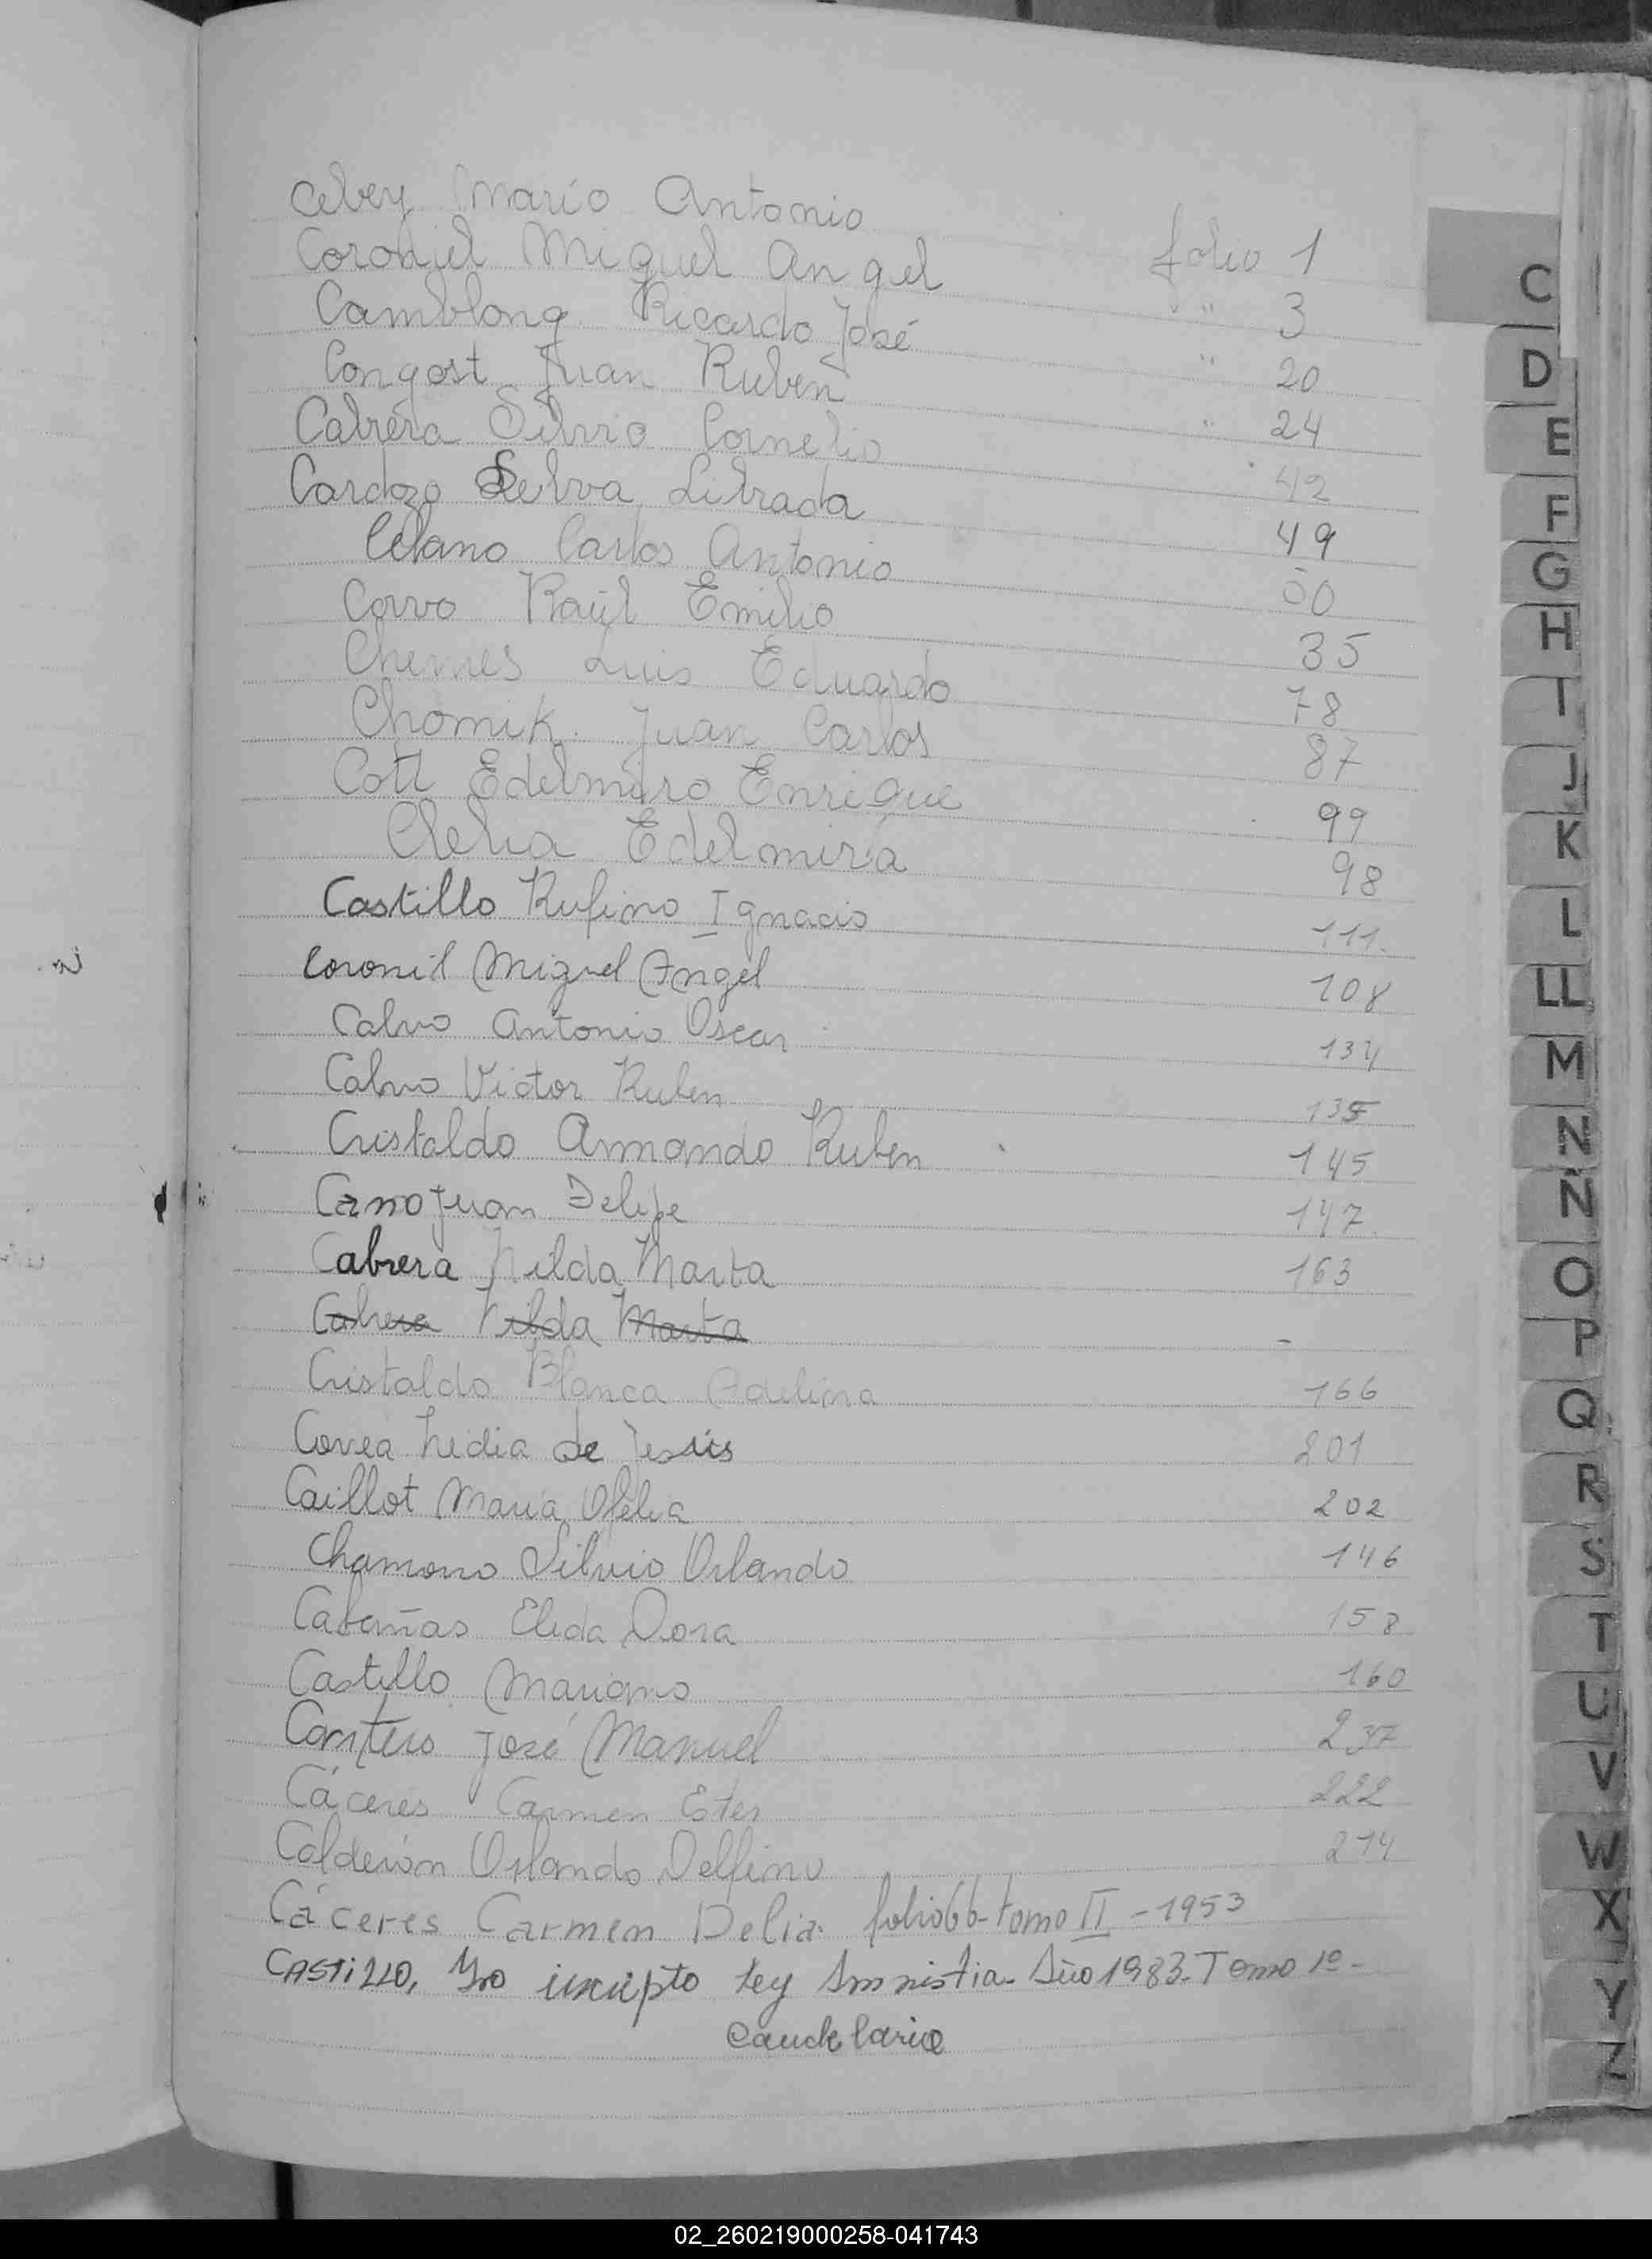 Celey Mario Antonio folio 1
Coroniel Miguel Angel " " 3
Camblong Ricardo José " 20
Congost Juan Ruben " 24
Cabrera Silvio Cornelio " 42
Cardozo Selva Librada 49
Celano Carlos Antonio 50
Corvo Raúl Emilio 35
Chemes Luis Eduardo 78
Chomik Juan Carlos 87
Cott Edelmiro Enrique 99
Clelia Edelmira 98
Castillo Rufino Ignacio 111
Coronil Miguel Angel 108
Calvo Antonio Oscar 134
Calvo Victor Ruben 135
Cristaldo Armando Ruben 145
Cano Juan Felipe 147
Cabrera Nilda Marta 163
Cabrera Nilda Marta -
Cristaldo Blanca Adelina 166
Correa Lidia de Jesús 201
Caillot Maria Ofelia 202
Chamorro Silvio Orlando 146
Cabañas Elida Dora 158
Castillo Mariano 160
Cantero José Manuel 237
Cáceres Carmen Ester 222
Calderón Orlando Delfino 214
Cáceres Carmen Delia folio 66-tomo II - 1953
CASTILLO, inscripto Ley Amnistia Año 1983. Tomo 1º -
Candelaria
C
D
E
F
G
H
I
J
K
L
LL
M
N
Ñ
O
P
Q
R
S
T
U
V
W
X
Y
Z
02_260219000258-041743